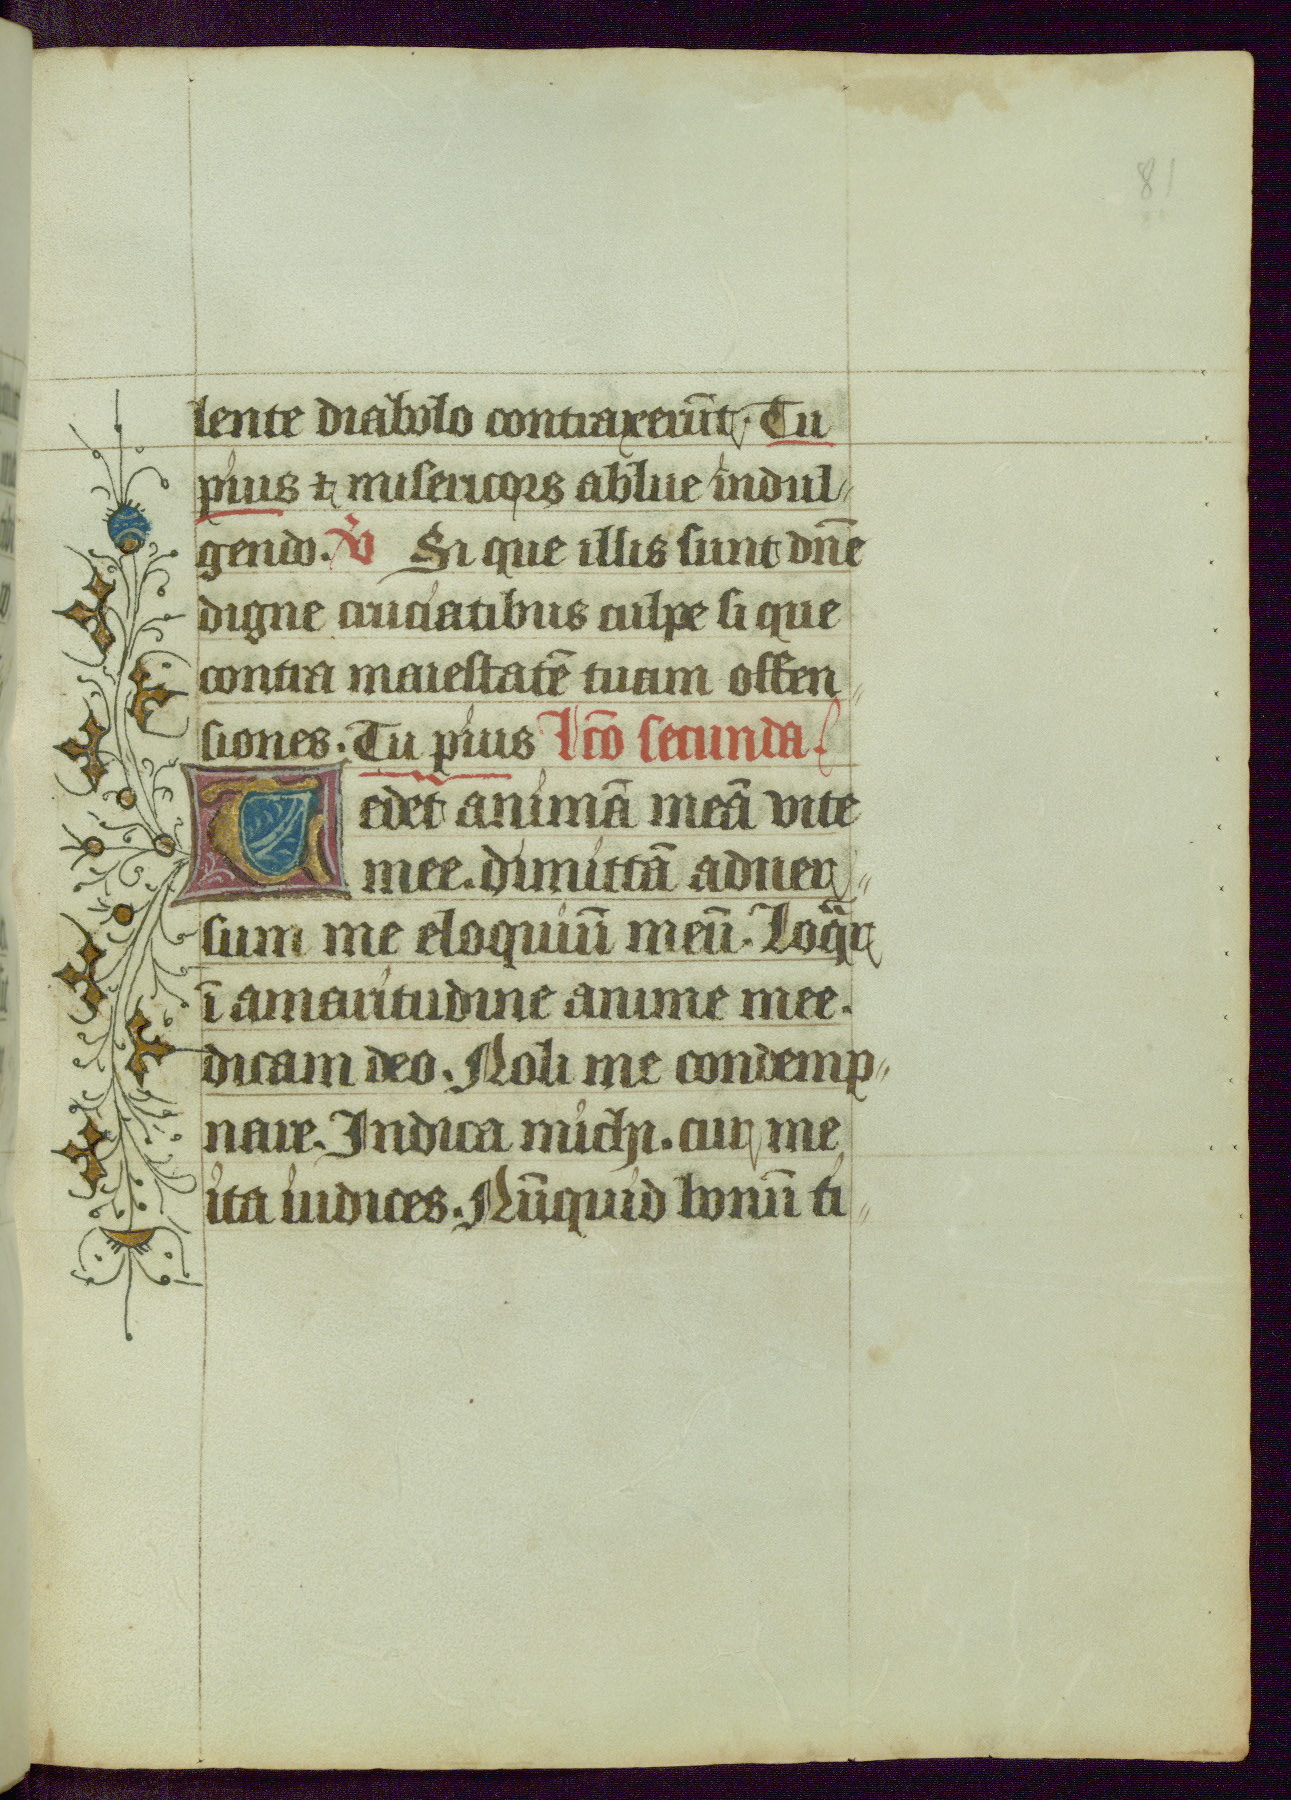 81
lente diabolo contraxerūt. Tu
pius ⁊ misericors ablue indul
gendo. ℣ Si que illis sunt dn̄e
digne cruciatibus culpe si que
contra maiestatē tuam offen
siones. Tu pius Lc̄o secunda.
Tedet animā meā vite
mee. dimittā aduer
sum me eloquiū meū. Loqr
ī amaritudine anime mee.
dicam deo. Noli me condemp
nare. Indica michi. cur me
ita iudices. Nūquid bonū ti